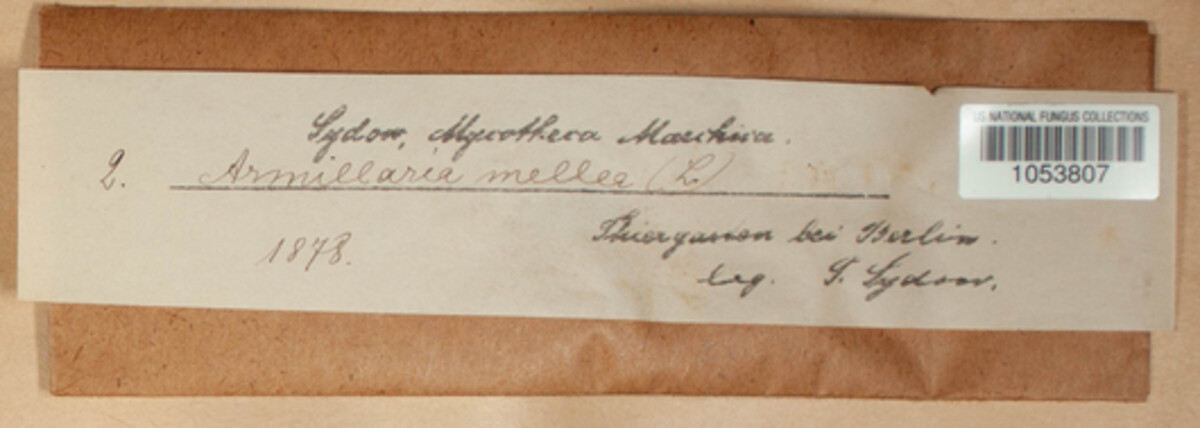 Sydow, Mycotheca Marchica.
2. Armillaria mellea (L.)
1878.
Thiergarten bei Berlin.
leg. P. Sydow.
US NATIONAL FUNGUS COLLECTIONS
1053807